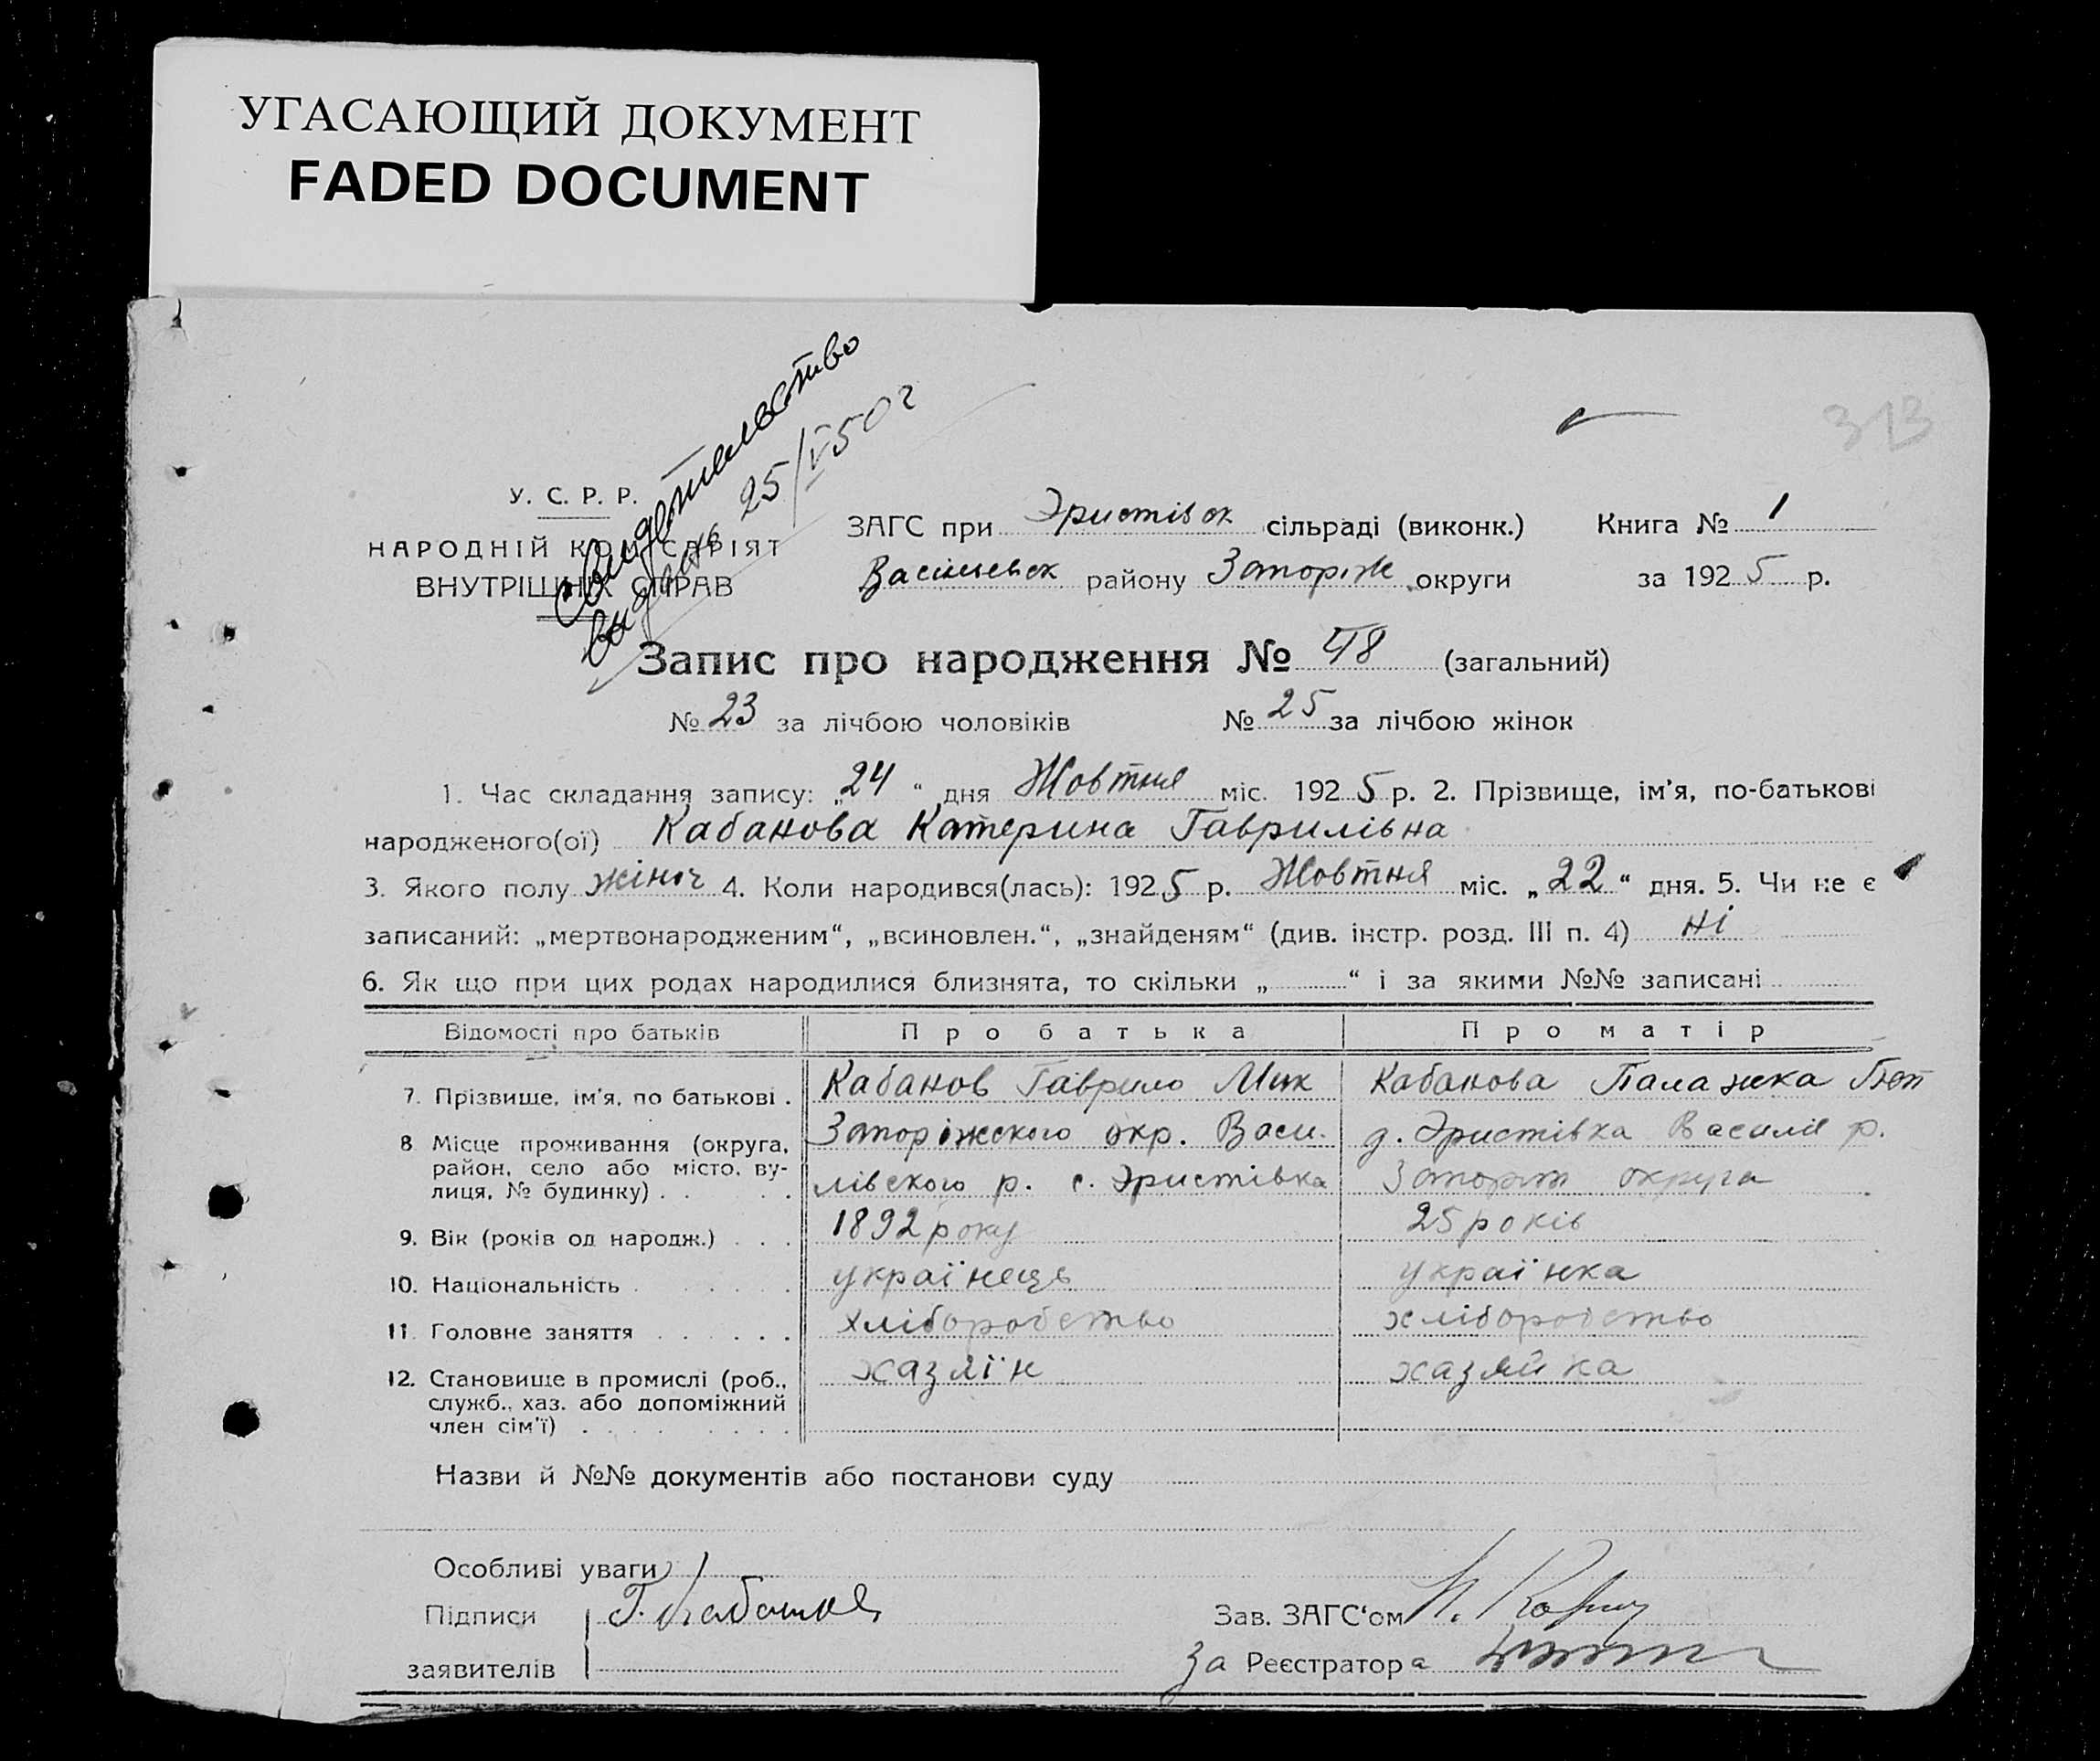 УГАСАЮЩИЙ ДОКУМЕНТ
FADED DOCUMENT
свидетельство
выдано 25/V 50 г
313
У. С. Р. Р.
НАРОДНІЙ КОМІСАРІЯТ
ВНУТРІШНІХ СПРАВ
ЗАГС при Эристівск сільраді (виконк.) Книга № 1
Васілевск району Запоріж округи за 1925 р.
Запис про народження № 48 (загальний)
№ 23 за лічбою чоловіків № 25 за лічбою жінок
1. Час складання запису: „24“ дня Жовтня міс. 1925 р. 2. Прізвище, ім'я, по-батькові
народженого(ої) Кабанова Катерина Гаврилівна
3. Якого полу жіноч 4. Коли народився(лась): 1925 р. Жовтня міс. „22“ дня. 5. Чи не є
записаний: „мертвонародженим“, „всиновлен.“, „знайденям“ (див. інстр. розд. III п. 4) ні
6. Як що при цих родах народилися близнята, то скільки „ “ і за якими №№ записані
Відомості про батьків Про батька Про матір
7. Прізвище, ім'я, по батькові . Кабанов Гаврило Мик Кабанова Палажка Пет
8 Місце проживання (округа, Запоріжского окр. Васи- д. Эристівка Василів р.
район, село або місто, ву-
лиця, № будинку) . . . . лівского р. с. Эристівка Запоріж округа
9. Вік (років од народж.) . . . 1892 року 25 років
10. Національність . . . . . українець українка
11. Головне заняття . . . . . . хліборобство хліборобство
12. Становище в промислі (роб., хазяїн хазяйка
служб., хаз. або допоміжний
член сім'ї) . . . . . . . .
Назви й №№ документів або постанови суду
Особливі уваги
Підписи Г. Кабанов Зав. ЗАГС'ом
заявителів За Реєстратора